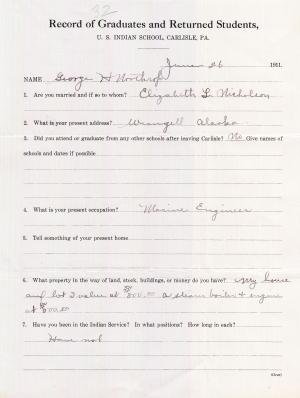 32
Record of Graduates and Returned Students,
U. S. INDIAN SCHOOL, CARLISLE, PA.
June 26 1911.
NAME George H Northrop
1. Are you married and if so to whom? Elizabeth L. Nicholson
2. What is your present address? Wrangell Alaska
3. Did you attend or graduate from any other schools after leaving Carlisle? No Give names of
schools and dates if possible
4. What is your present occupation? Marine Engineer
5. Tell something of your present home
6. What property in the way of land, stock, buildings, or money do you have? My house
and lot I value at $800.00 a steam boiler & engine
at $600.00
7. Have you been in the Indian Service? In what positions? How long in each?
Have not
(Over)